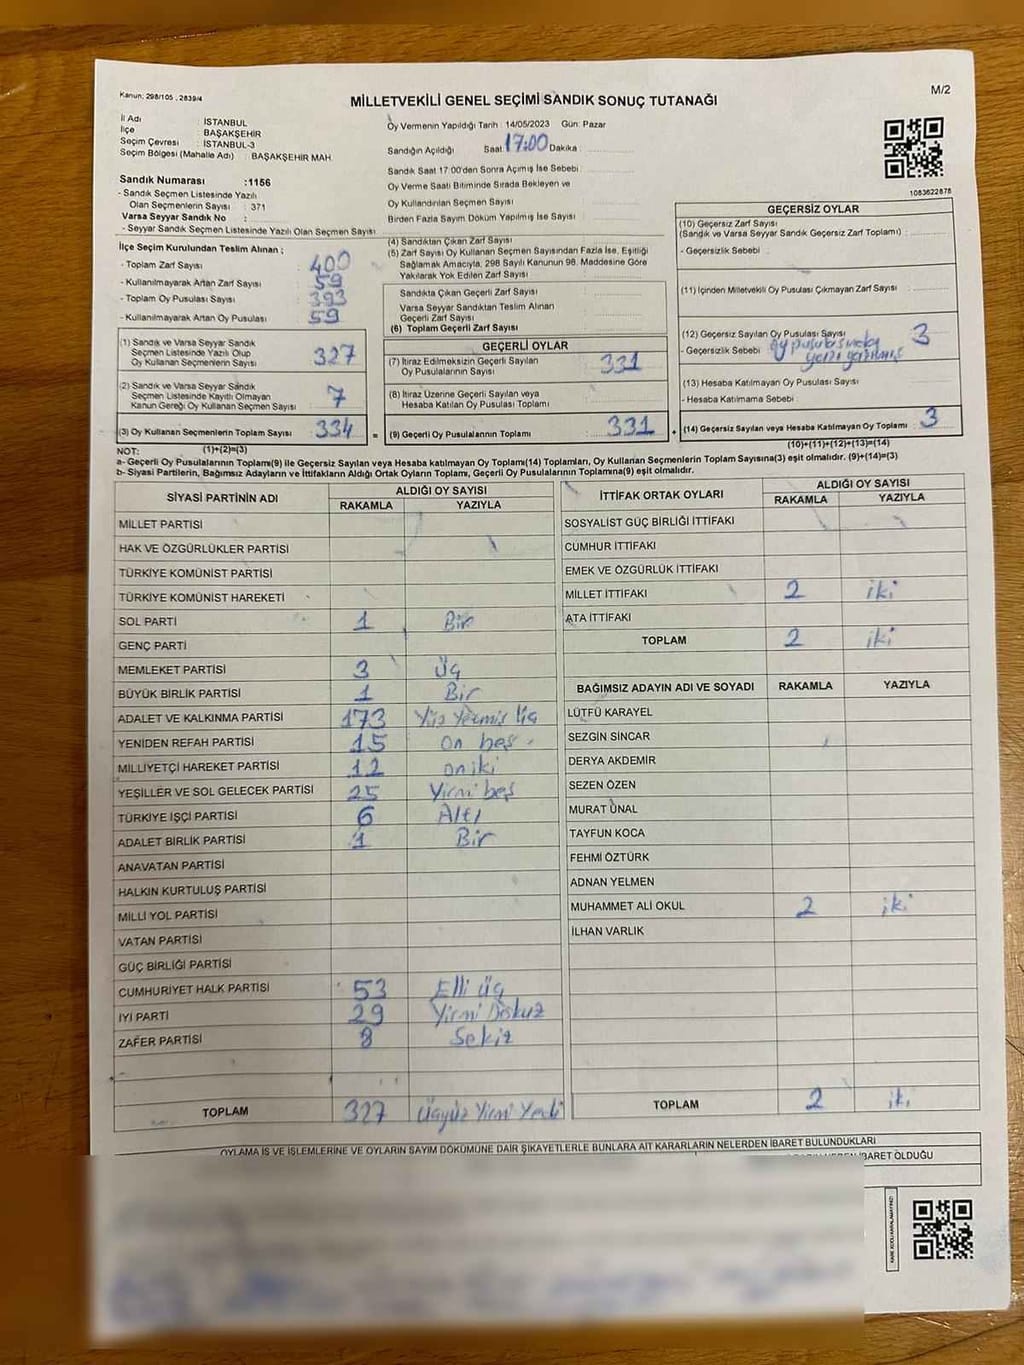 Kanun: 298/105 , 2839/4
M/2
MİLLETVEKİLİ GENEL SEÇİMİ SANDIK SONUÇ TUTANAĞI
İl Adı : İSTANBUL
İlçe : BAŞAKŞEHİR
Seçim Çevresi : İSTANBUL-3
Seçim Bölgesi (Mahalle Adı) : BAŞAKŞEHİR MAH.
Sandık Numarası :1156
- Sandık Seçmen Listesinde Yazılı
Olan Seçmenlerin Sayısı : 371
Varsa Seyyar Sandık No :
- Seyyar Sandık Seçmen Listesinde Yazılı Olan Seçmen Sayısı
Oy Vermenin Yapıldığı Tarih : 14/05/2023 Gün: Pazar
Sandığın Açıldığı Saat 17:00 Dakika
Sandık Saat 17:00'den Sonra Açımış İse Sebebi
Oy Verme Saati Bitiminde Sırada Bekleyen ve
Oy Kullandırılan Seçmen Sayısı
Birden Fazla Sayım Döküm Yapılmış İse Sayısı
1083622878
İlçe Seçim Kurulundan Teslim Alınan ;
- Toplam Zarf Sayısı : 400
- Kullanılmayarak Artan Zarf Sayısı : 59
- Toplam Oy Pusulası Sayısı : 393
- Kullanılmayarak Artan Oy Pusulası : 59
(1) Sandık ve Varsa Seyyar Sandık
Seçmen Listesinde Yazılı Olup
Oy Kullanan Seçmenlerin Sayısı : 327
(2) Sandık ve Varsa Seyyar Sandık
Seçmen Listesinde Kayıtlı Olmayan
Kanun Gereği Oy Kullanan Seçmen Sayısı : 7
(3) Oy Kullanan Seçmenlerin Toplam Sayısı : 334 =
(4) Sandıktan Çıkan Zarf Sayısı
(5) Zarf Sayısı Oy Kullanan Seçmen Sayısından Fazla İse, Eşitliği
Sağlamak Amacıyla, 298 Sayılı Kanunun 98. Maddesine Göre
Yakılarak Yok Edilen Zarf Sayısı
Sandıkta Çıkan Geçerli Zarf Sayısı
Varsa Seyyar Sandıktan Teslim Alınan
Geçerli Zarf Sayısı
(6) Toplam Geçerli Zarf Sayısı
GEÇERLİ OYLAR
(7) İtiraz Edilmeksizin Geçerli Sayılan
Oy Pusulalarının Sayısı : 331
(8) İtiraz Üzerine Geçerli Sayılan veya
Hesaba Katılan Oy Pusulası Toplamı
(9) Geçerli Oy Pusulalarının Toplamı : 331 +
GEÇERSİZ OYLAR
(10) Geçersiz Zarf Sayısı
(Sandık ve Varsa Seyyar Sandık Geçersiz Zarf Toplamı) :
- Geçersizlik Sebebi
(11) İçinden Milletvekili Oy Pusulası Çıkmayan Zarf Sayısı
(12) Geçersiz Sayılan Oy Pusulası Sayısı 3
- Geçersizlik Sebebi : oy pusulasında
yazı yazılmış
(13) Hesaba Katılmayan Oy Pusulası Sayısı
- Hesaba Katılmama Sebebi
(14) Geçersiz Sayılan veya Hesaba Katılmayan Oy Toplamı : 3
NOT: (1)+(2)=(3) (10)+(11)+(12)+(13)=(14)
a- Geçerli Oy Pusulalarının Toplamı(9) ile Geçersiz Sayılan veya Hesaba katılmayan Oy Toplamı(14) Toplamları, Oy Kullanan Seçmenlerin Toplam Sayısına(3) eşit olmalıdır. (9)+(14)=(3)
b- Siyasi Partilerin, Bağımsız Adayların ve İttifakların Aldığı Ortak Oyların Toplamı, Geçerli Oy Pusulalarının Toplamına(9) eşit olmalıdır.
SİYASİ PARTİNİN ADI ALDIĞI OY SAYISI
RAKAMLA YAZIYLA
MİLLET PARTİSİ
HAK VE ÖZGÜRLÜKLER PARTİSİ
TÜRKİYE KOMÜNİST PARTİSİ
TÜRKİYE KOMÜNİST HAREKETİ
SOL PARTİ 1 Bir
GENÇ PARTİ
MEMLEKET PARTİSİ 3 Üç
BÜYÜK BİRLİK PARTİSİ 1 Bir
ADALET VE KALKINMA PARTİSİ 173 Yüz Yetmiş Üç
YENİDEN REFAH PARTİSİ 15 on beş
MİLLİYETÇİ HAREKET PARTİSİ 12 on iki
YEŞİLLER VE SOL GELECEK PARTİSİ 25 Yirmi beş
TÜRKİYE İŞÇİ PARTİSİ 6 Altı
ADALET BİRLİK PARTİSİ 1 Bir
ANAVATAN PARTİSİ
HALKIN KURTULUŞ PARTİSİ
MİLLİ YOL PARTİSİ
VATAN PARTİSİ
GÜÇ BİRLİĞİ PARTİSİ
CUMHURİYET HALK PARTİSİ 53 Elli Üç
İYİ PARTİ 29 Yirmi Dokuz
ZAFER PARTİSİ 8 Sekiz
TOPLAM 327 Üçyüz Yirmi Yedi
İTTİFAK ORTAK OYLARI ALDIĞI OY SAYISI
RAKAMLA YAZIYLA
SOSYALİST GÜÇ BİRLİĞİ İTTİFAKI
CUMHUR İTTİFAKI
EMEK VE ÖZGÜRLÜK İTTİFAKI
MİLLET İTTİFAKI 2 iki
ATA İTTİFAKI
TOPLAM 2 iki
BAĞIMSIZ ADAYIN ADI VE SOYADI RAKAMLA YAZIYLA
LÜTFÜ KARAYEL
SEZGİN SİNCAR
DERYA AKDEMİR
SEZEN ÖZEN
MURAT ÜNAL
TAYFUN KOCA
FEHMİ ÖZTÜRK
ADNAN YELMEN
MUHAMMET ALİ OKUL 2 iki
İLHAN VARLIK
TOPLAM 2 iki
OYLAMA İŞ VE İŞLEMLERİNE VE OYLARIN SAYIM DÖKÜMÜNE DAİR ŞİKAYETLERLE BUNLARA AİT KARARLARIN NELERDEN İBARET BULUNDUKLARI
İBARET OLDUĞU
KARE KODU KARALAMAYINIZ!